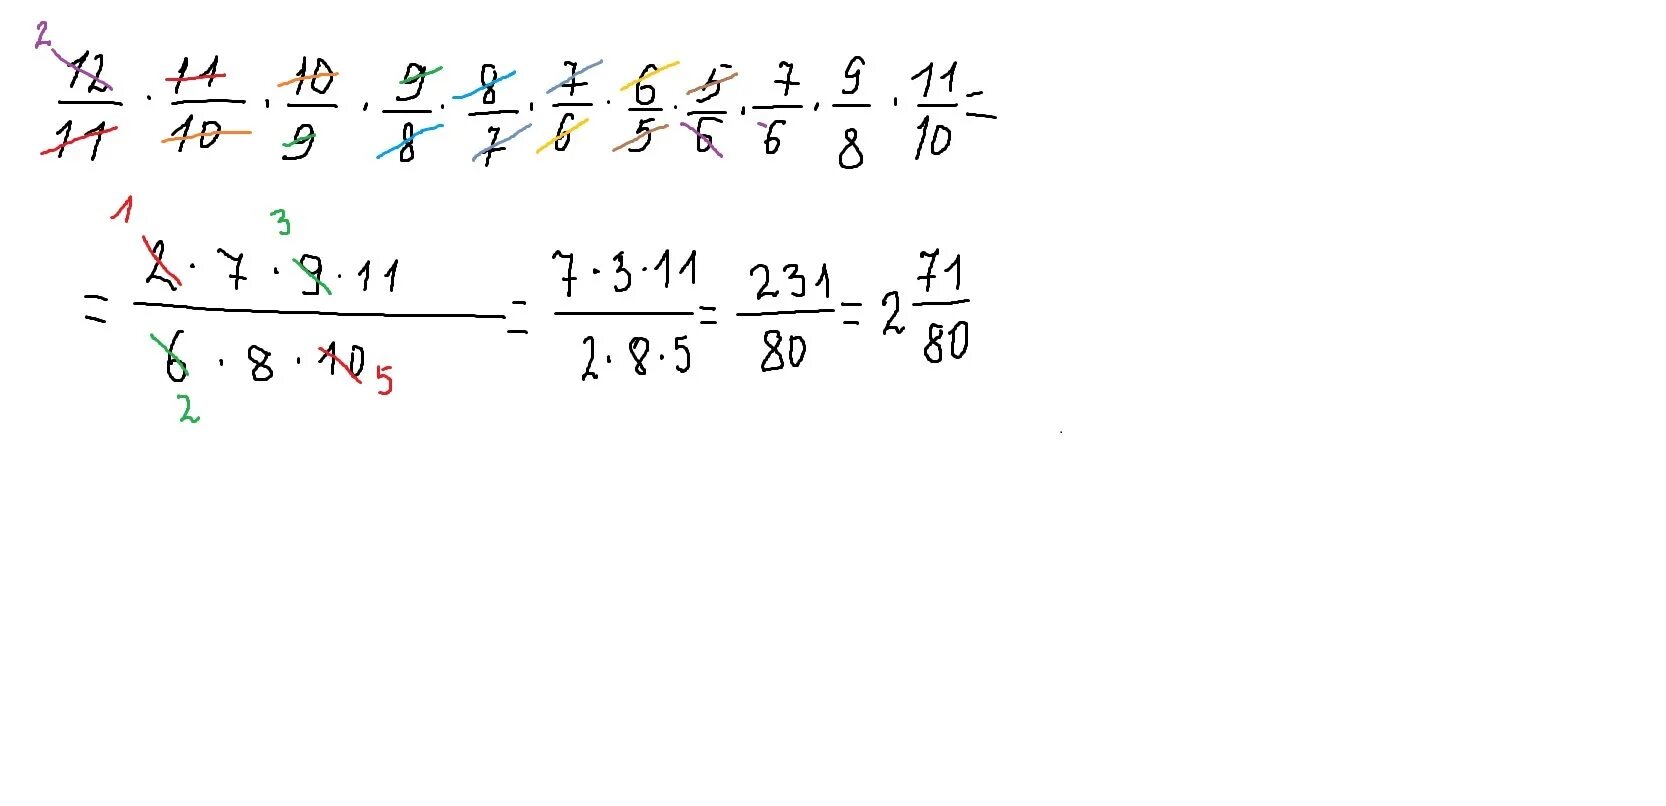 2
12/11 · 11/10 · 10/9 · 9/8 · 8/7 · 7/6 · 6/5 · 5/6 · 7/6 · 9/8 · 11/10 =
1 3
= (2 · 7 · 9 · 11)/(6 · 8 · 10) = (7 · 3 · 11)/(2 · 8 · 5) = 231/80 = 2 71/80
2 5